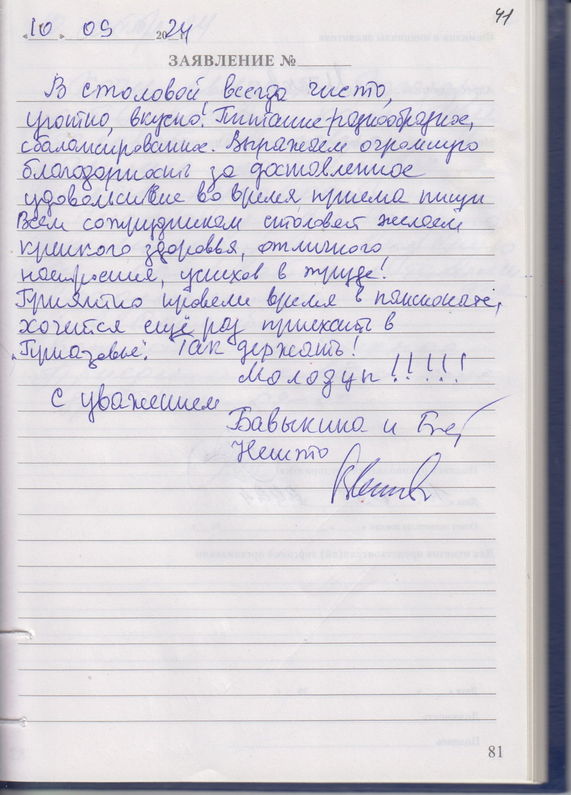 41
«10» 09 2024
ЗАЯВЛЕНИЕ №
В столовой всегда чисто,
уютно, вкусно! Питание разнообразное,
сбалансированное. Выражаем огромную
благодарность за доставленное
удовольствие во время приема пищи
Всем сотрудникам столовой желаем
крепкого здоровья, отличного
настроения, успехов в труде!
Приятно провели время в пансионате,
хочется ещё раз приехать в
"Приазовье". Так держать!
Молодцы!!!!!
С уважением
Бавыкина и
81